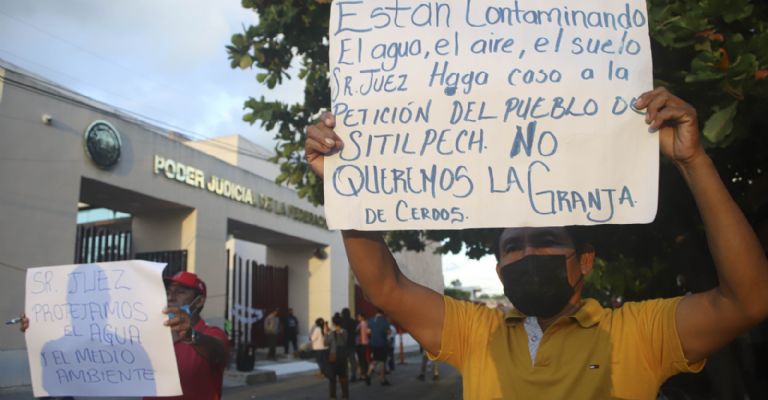 Están Contaminando
El agua, el aire, el suelo
Sr. Juez Haga caso a la
Petición del Pueblo de
Sitilpech. No
Queremos la Granja.
de Cerdos.
PODER JUDICIAL DE LA FEDERACIÓN
SR. JUEZ
PROTEJAMOS
EL AGUA
Y EL MEDIO
AMBIENTE